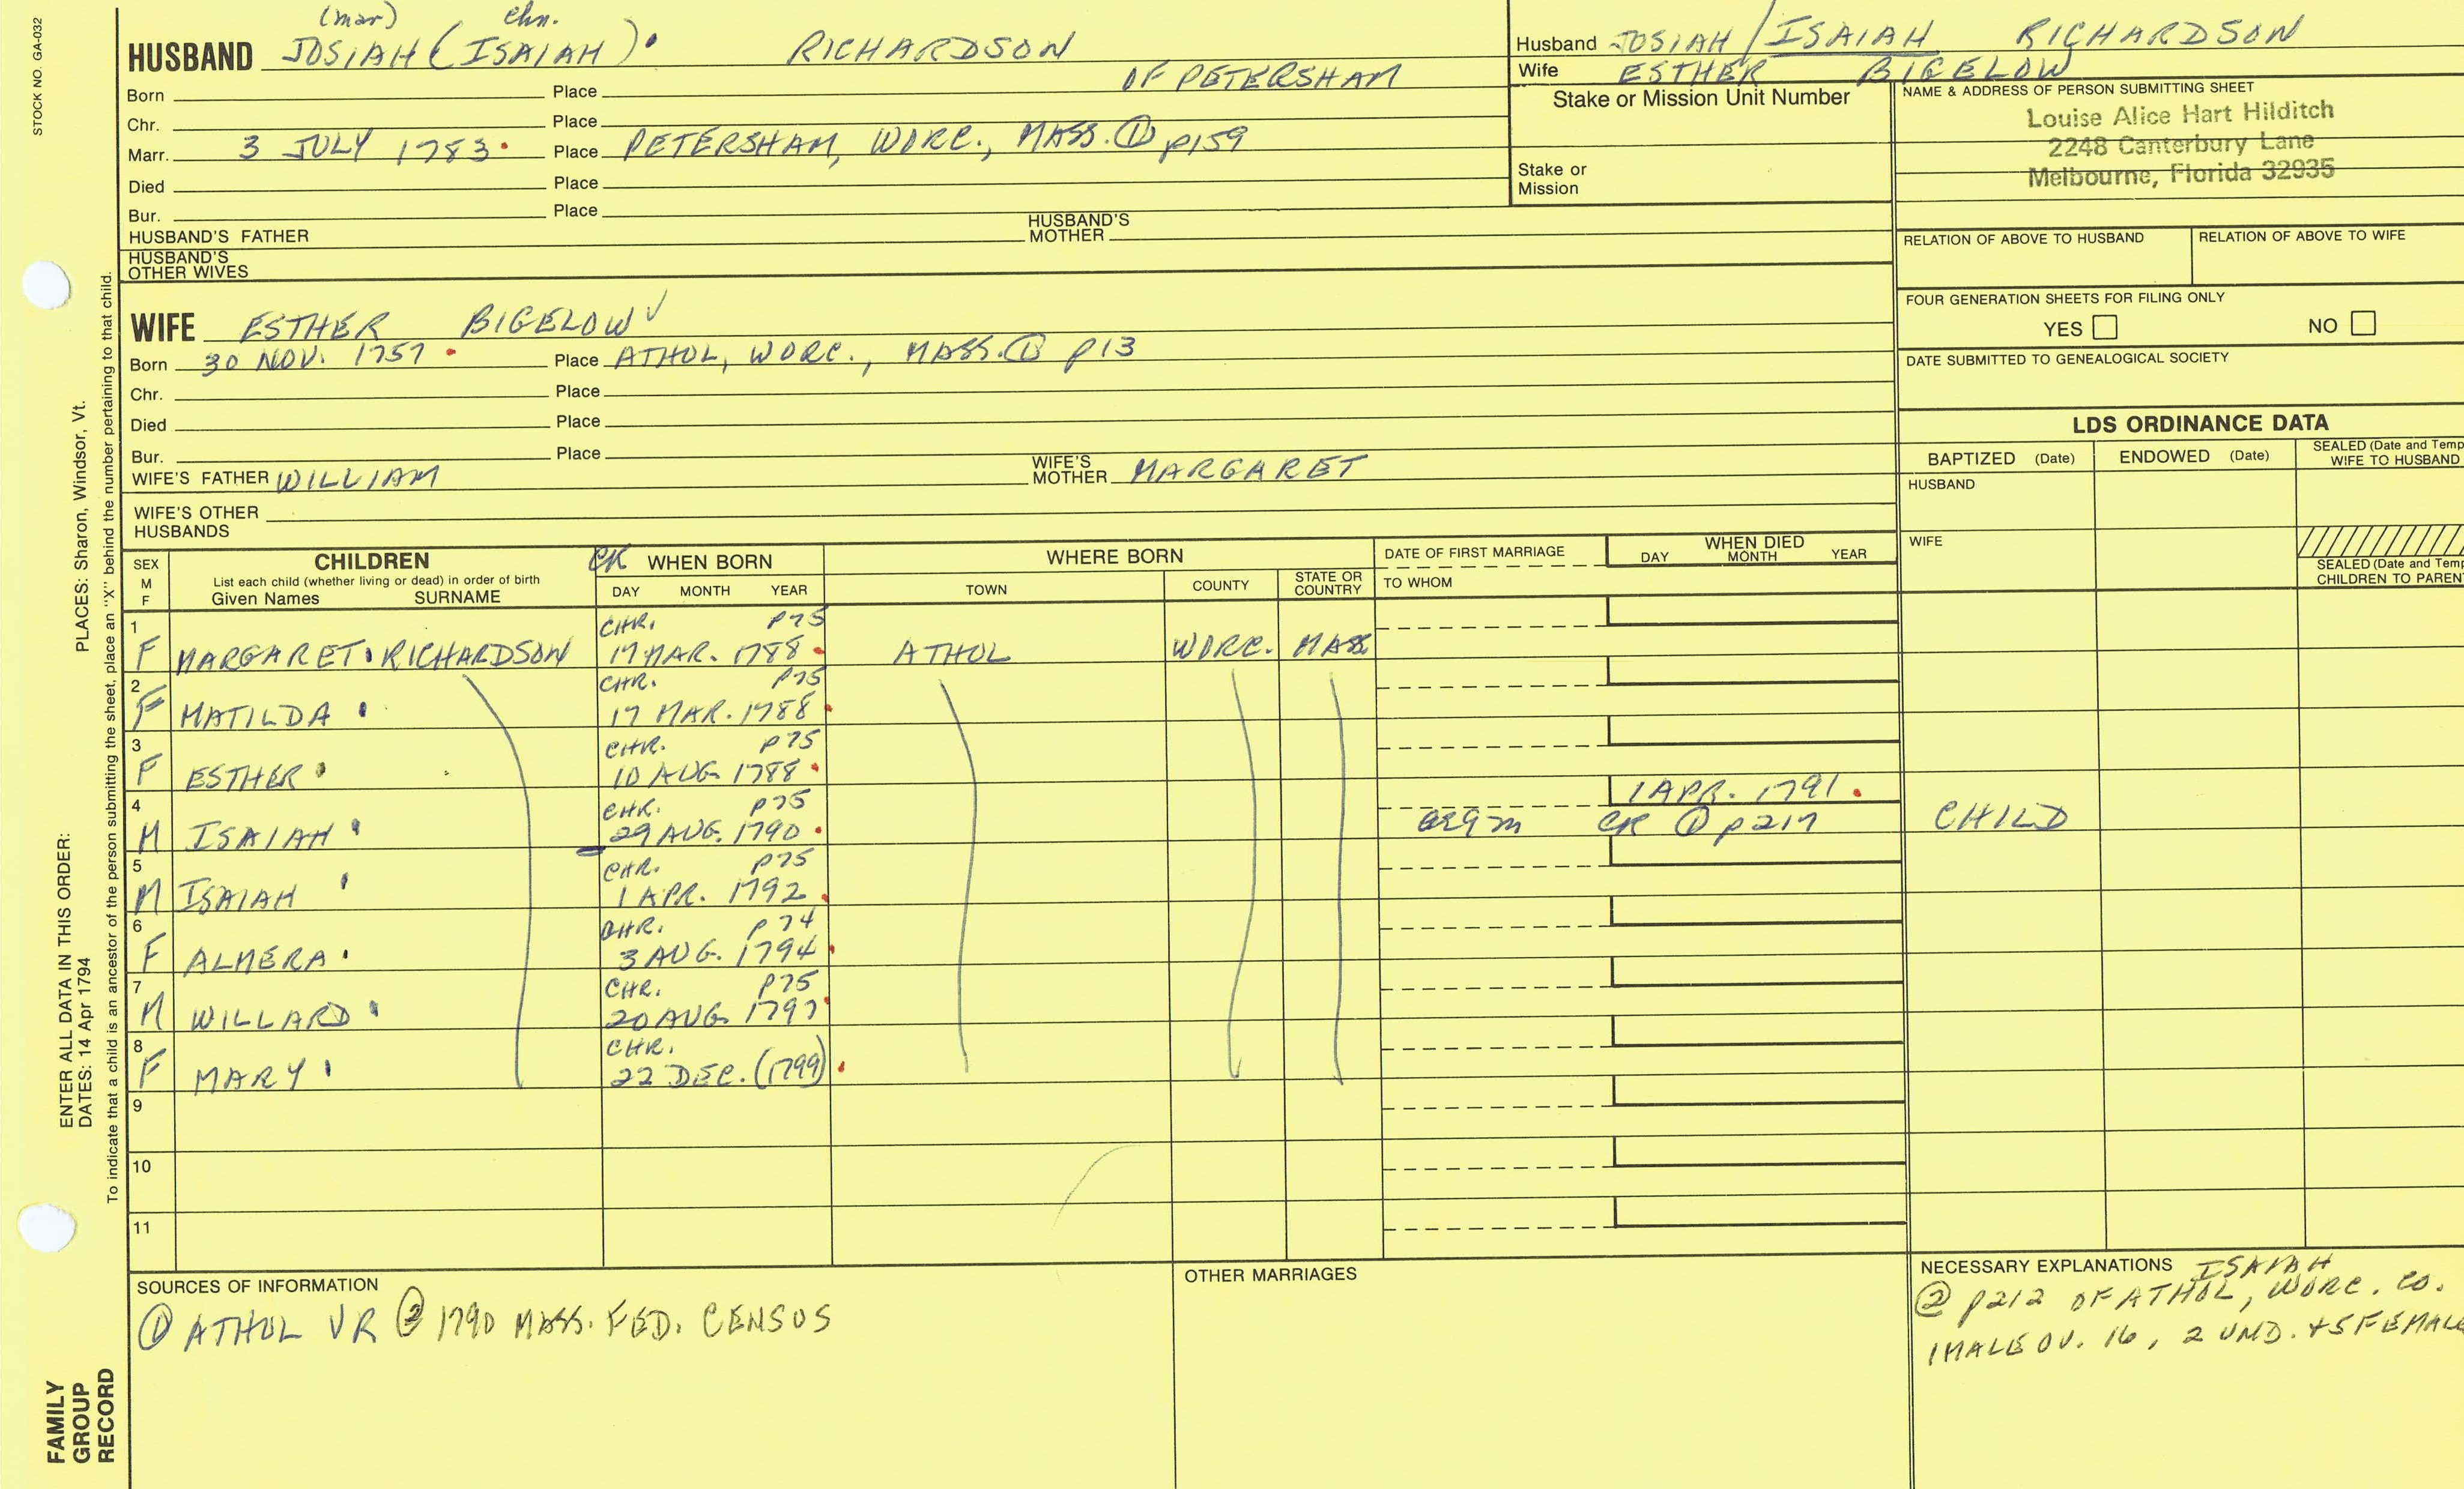 STOCK NO. GA-032
(mar) chn.
HUSBAND JOSIAH (ISAIAH) RICHARDSON
OF PETERSHAM
Born Place
Chr. Place
Marr. 3 JULY 1783 Place PETERSHAM, WORC., MASS. ① p159
Died Place
Bur. Place
HUSBAND'S FATHER HUSBAND'S MOTHER
HUSBAND'S OTHER WIVES
Husband JOSIAH / ISAIAH RICHARDSON
Wife ESTHER BIGELOW
Stake or Mission Unit Number
Stake or
Mission
NAME & ADDRESS OF PERSON SUBMITTING SHEET
Louise Alice Hart Hilditch
2248 Canterbury Lane
Melbourne, Florida 32935
RELATION OF ABOVE TO HUSBAND RELATION OF ABOVE TO WIFE
FOUR GENERATION SHEETS FOR FILING ONLY
YES NO
DATE SUBMITTED TO GENEALOGICAL SOCIETY
WIFE ESTHER BIGELOW ✓
Born 30 NOV. 1757 Place ATHOL, WORC., MASS. ① p13
Chr. Place
Died Place
Bur. Place
WIFE'S FATHER WILLIAM WIFE'S MOTHER MARGARET
WIFE'S OTHER
HUSBANDS
LDS ORDINANCE DATA
BAPTIZED (Date) ENDOWED (Date) SEALED (Date and Temp
WIFE TO HUSBAND
HUSBAND
WIFE
SEALED (Date and Temp
CHILDREN TO PAREN
SEX
M
F
CHILDREN
List each child (whether living or dead) in order of birth
Given Names SURNAME
CR WHEN BORN
DAY MONTH YEAR
WHERE BORN
TOWN COUNTY STATE OR COUNTRY
DATE OF FIRST MARRIAGE
TO WHOM
WHEN DIED
DAY MONTH YEAR
1 CHR. P75
F MARGARET RICHARDSON 17 MAR. 1788 ATHOL WORC. MASS.
2 CHR. P75
F MATILDA 17 MAR. 1788
3 CHR. P75
F ESTHER 10 AUG. 1788
4 CHR. P75 1 APR. 1791
M ISAIAH 29 AUG. 1790 CR ① p217 CHILD
5 CHR. P75
M ISAIAH 1 APR. 1792
6 CHR. P74
F ALMERA 3 AUG. 1794
7 CHR. P75
M WILLARD 20 AUG. 1797
8 CHR.
F MARY 22 DEC. (1799)
9
10
11
SOURCES OF INFORMATION
① ATHOL VR ② 1790 MASS. FED. CENSUS
OTHER MARRIAGES
NECESSARY EXPLANATIONS ISAIAH
② p212 OF ATHOL, WORC. CO.
1 MALE OV. 16, 2 UND. + 5 FEMALE
PLACES: Sharon, Windsor, Vt.
ENTER ALL DATA IN THIS ORDER:
DATES: 14 Apr 1794
To indicate that a child is an ancestor of the person submitting the sheet, place an "X" behind the number pertaining to that child.
FAMILY
GROUP
RECORD